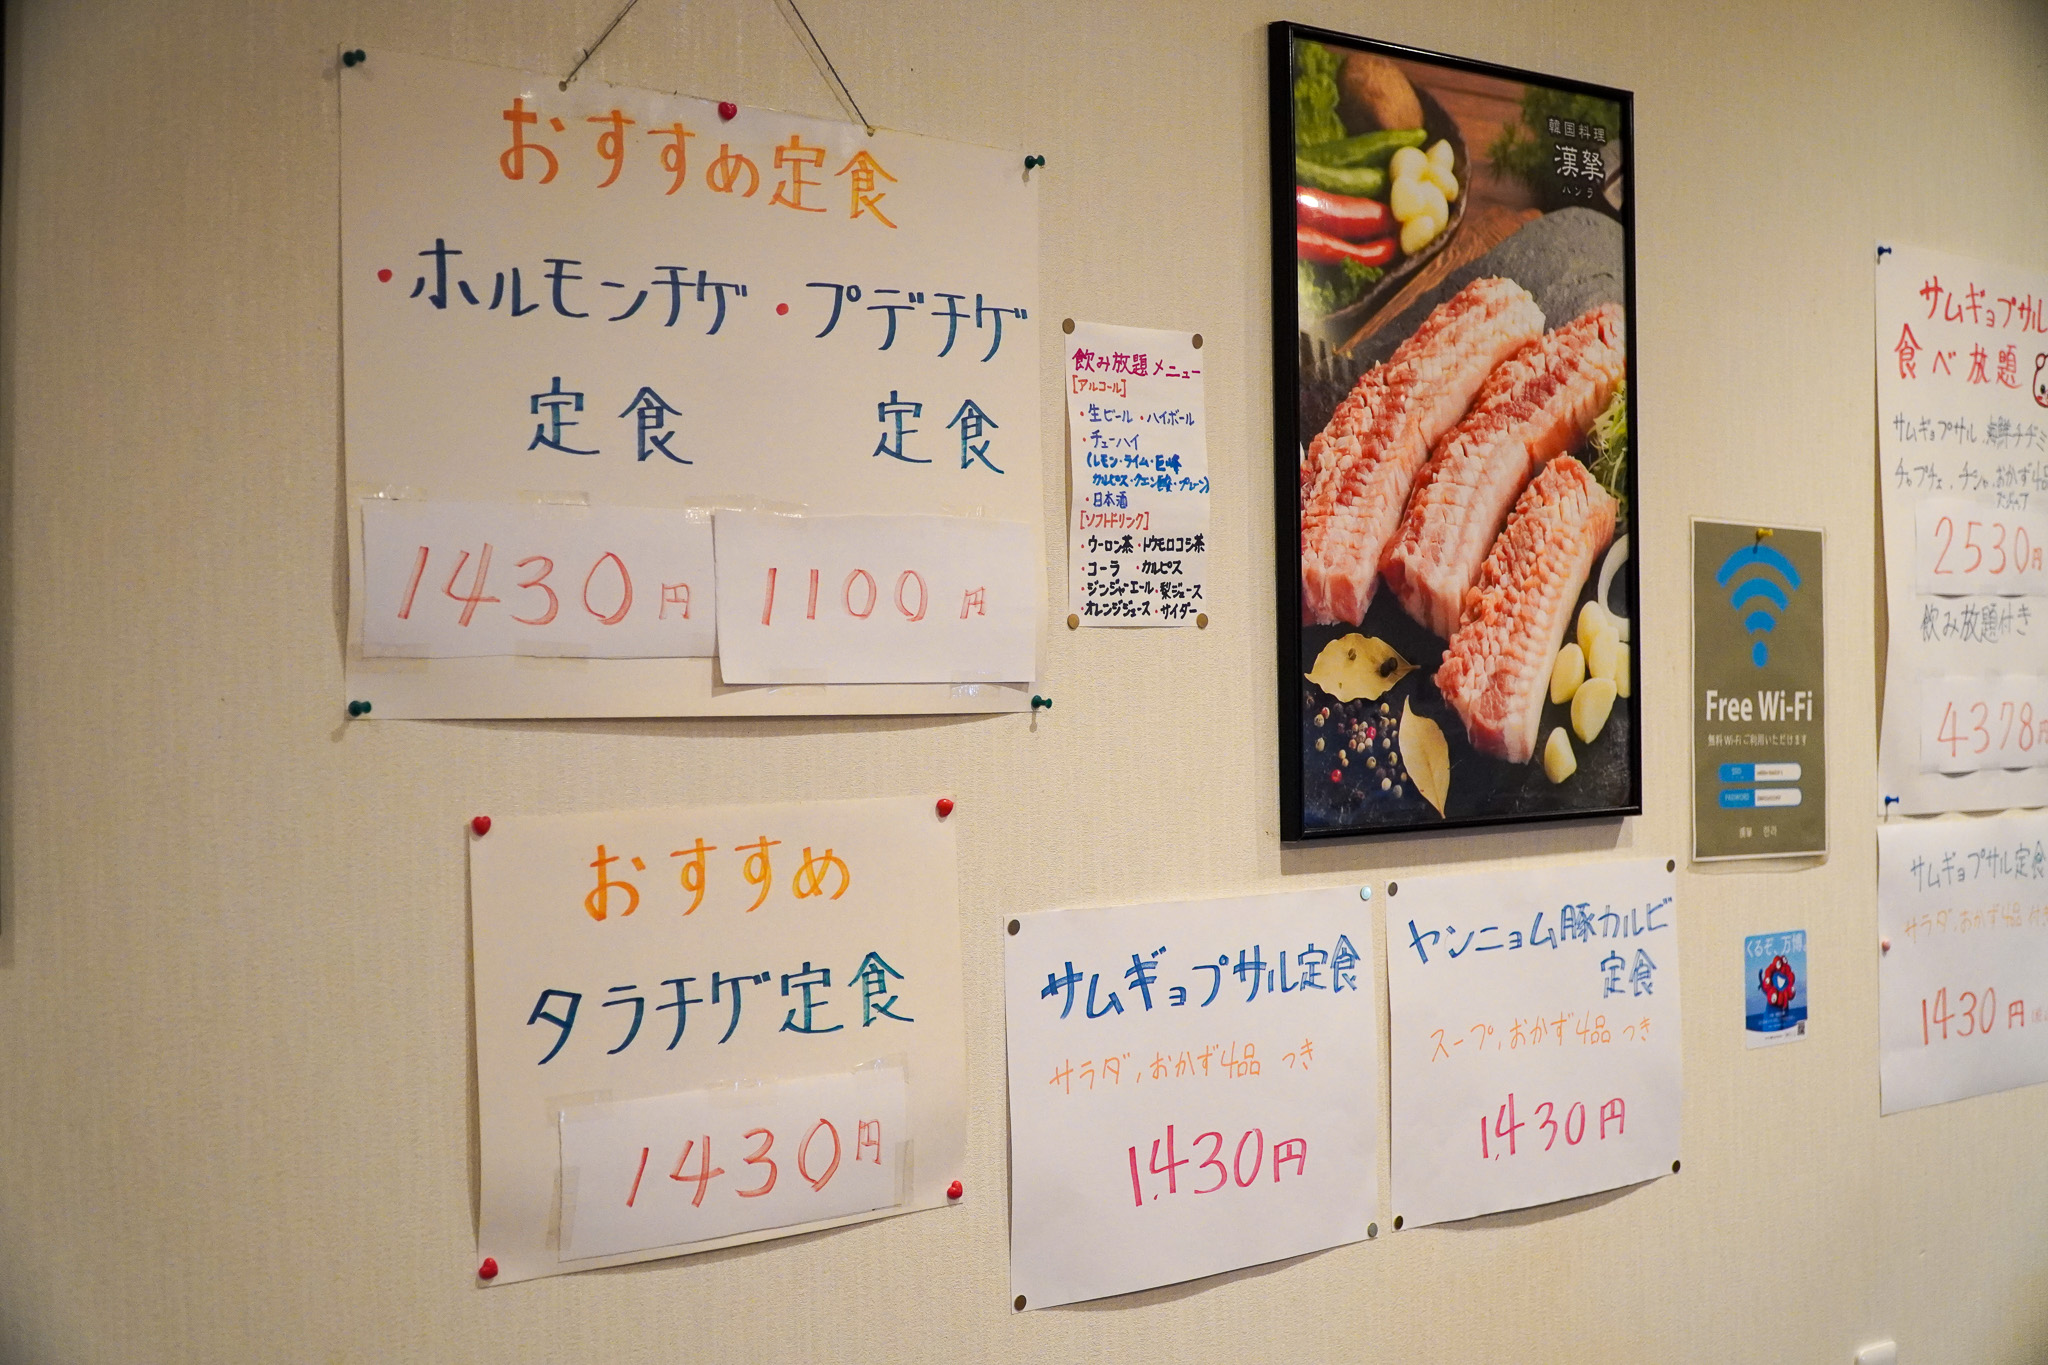 おすすめ定食
・ホルモンチゲ ・プデチゲ
定食 定食
1430円 1100円
おすすめ
タラチゲ定食
1430円
飲み放題メニュー
[アルコール]
・生ビール ・ハイボール
・チューハイ
(レモン・ライム・巨峰
カルピス・クエン酸・プレーン)
・日本酒
[ソフトドリンク]
・ウーロン茶 ・トウモロコシ茶
・コーラ ・カルピス
・ジンジャーエール ・梨ジュース
・オレンジジュース ・サイダー
韓国料理
漢拏
ハンラ
サムギョプサル定食
サラダ、おかず4品 つき
1,430円
ヤンニョム豚カルビ
定食
スープ、おかず4品 つき
1,430円
Free Wi-Fi
無料Wi-Fiご利用いただけます
SSID
PASSWORD
漢拏 한라
くるぞ、万博。
サムギョプサル
食べ放題
サムギョプサル、海鮮チヂミ
チャプチェ、チシャ、おかず4品
2530円
飲み放題付き
4378円
サムギョプサル定食
サラダ、おかず4品 付き
1430円